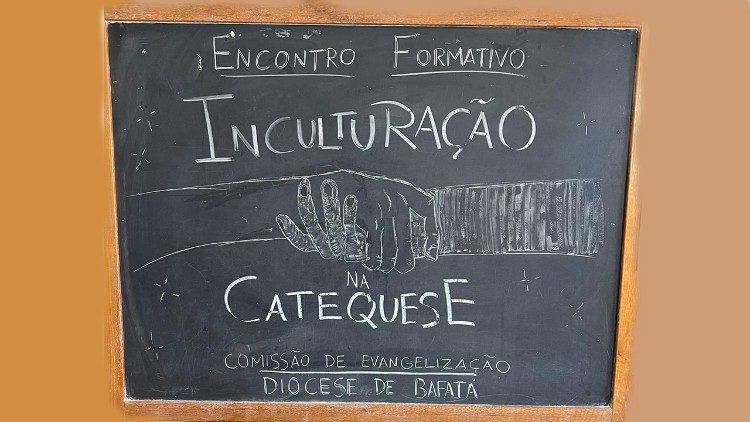 ENCONTRO FORMATIVO
INCULTURAÇÃO
NA
CATEQUESE
COMISSÃO DE EVANGELIZAÇÃO
DIOCESE DE BAFATÁ